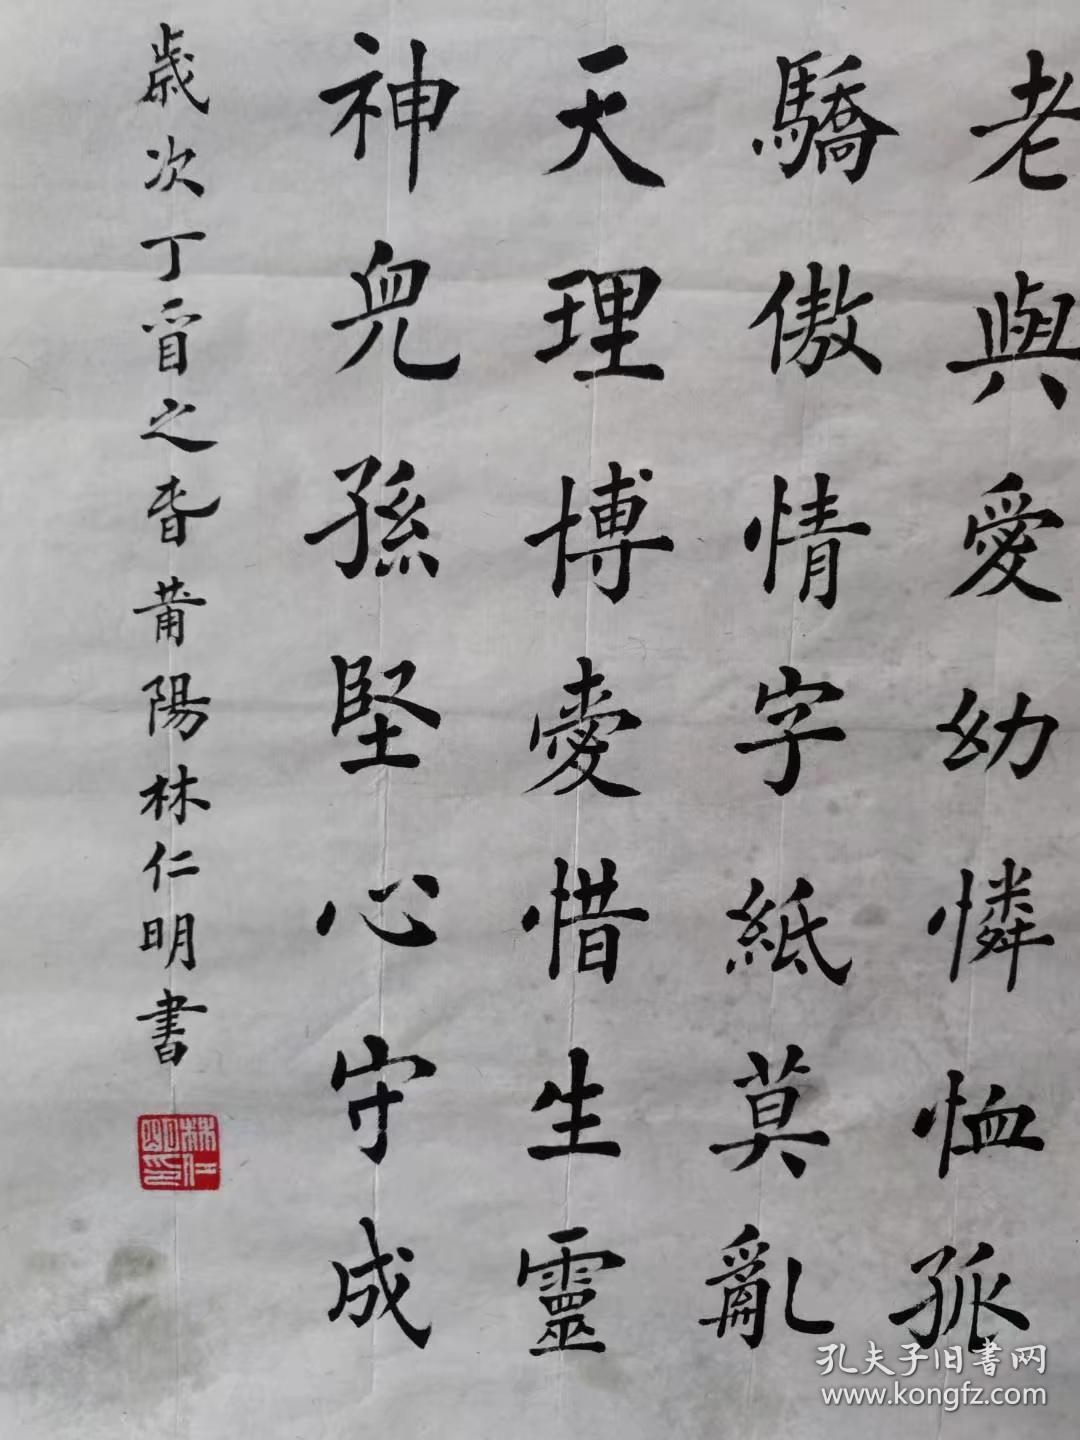 老與愛幼憐恤孤
驕傲情字紙莫亂
天理博愛惜生靈
神兒孫堅心守成
歲次丁酉之春莆陽林仁明書
林仁明印
孔夫子旧書网
www.kongfz.com